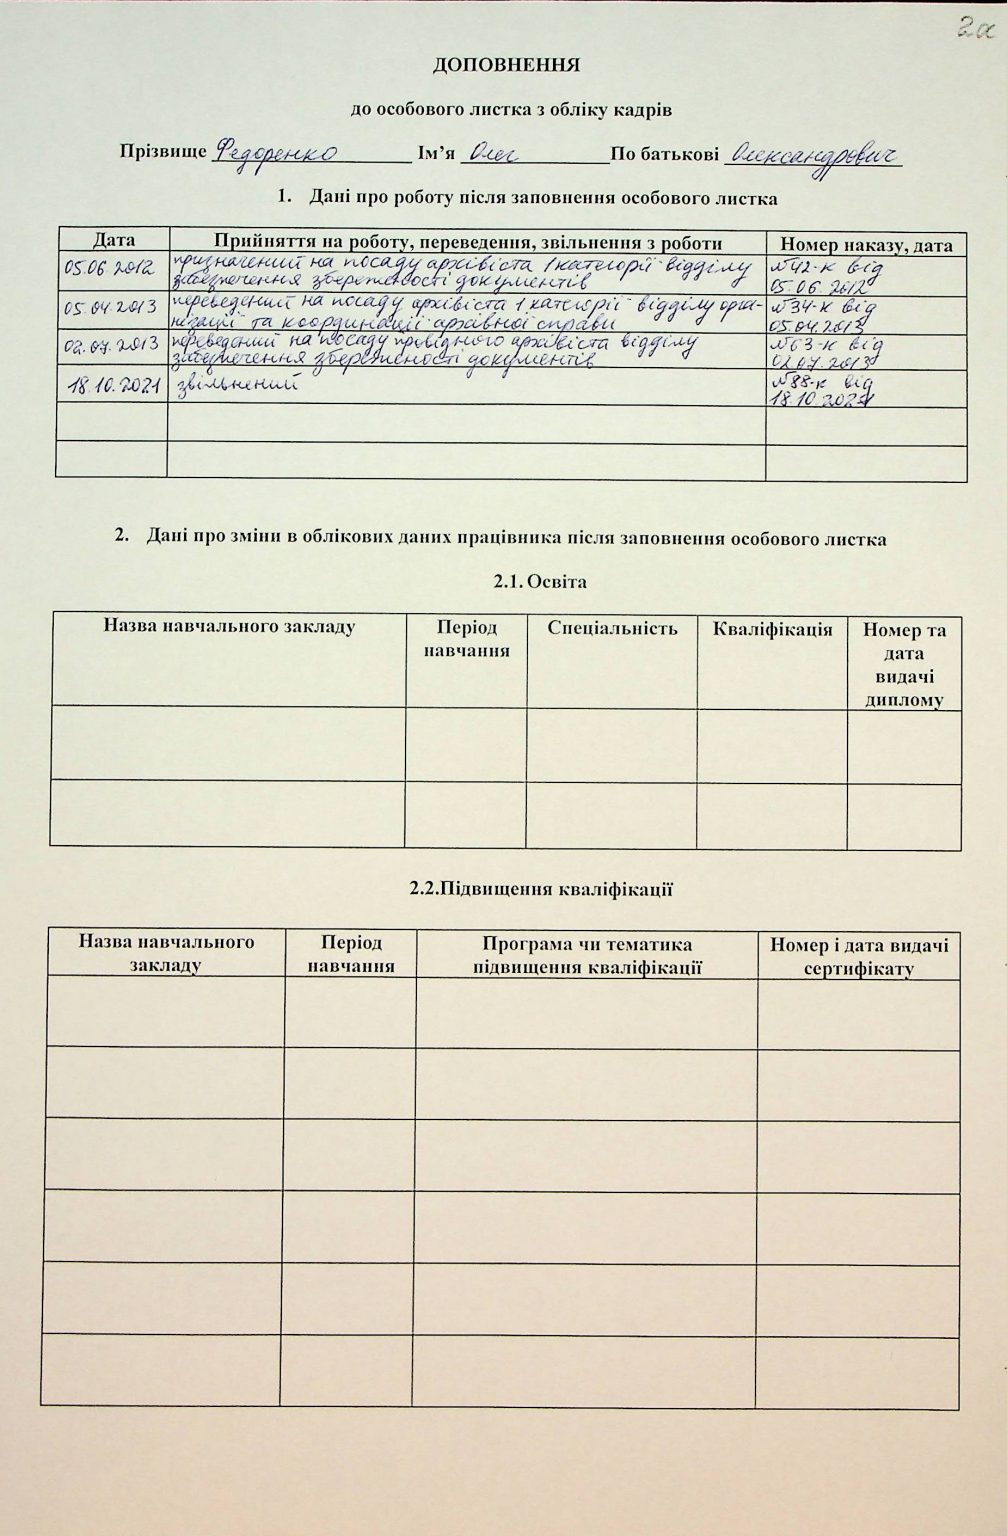 2а
ДОПОВНЕННЯ
до особового листка з обліку кадрів
Прізвище Федоренко Ім’я Олег По батькові Олександрович
1. Дані про роботу після заповнення особового листка
Дата Прийняття на роботу, переведення, звільнення з роботи Номер наказу, дата
05.06.2012 призначений на посаду архівіста 1 категорії відділу №42-к від
забезпечення збереженості документів 05.06.2012
05.04.2013 переведений на посаду архівіста 1 категорії відділу орга- №34-к від
нізації та координації архівної справи 05.04.2013
02.07.2013 переведений на посаду провідного архівіста відділу №63-к від
забезпечення збереженості документів 02.07.2013
18.10.2021 звільнений №88-к від
18.10.2021
2. Дані про зміни в облікових даних працівника після заповнення особового листка
2.1. Освіта
Назва навчального закладу Період Спеціальність Кваліфікація Номер та
навчання дата
видачі
диплому
2.2.Підвищення кваліфікації
Назва навчального Період Програма чи тематика Номер і дата видачі
закладу навчання підвищення кваліфікації сертифікату